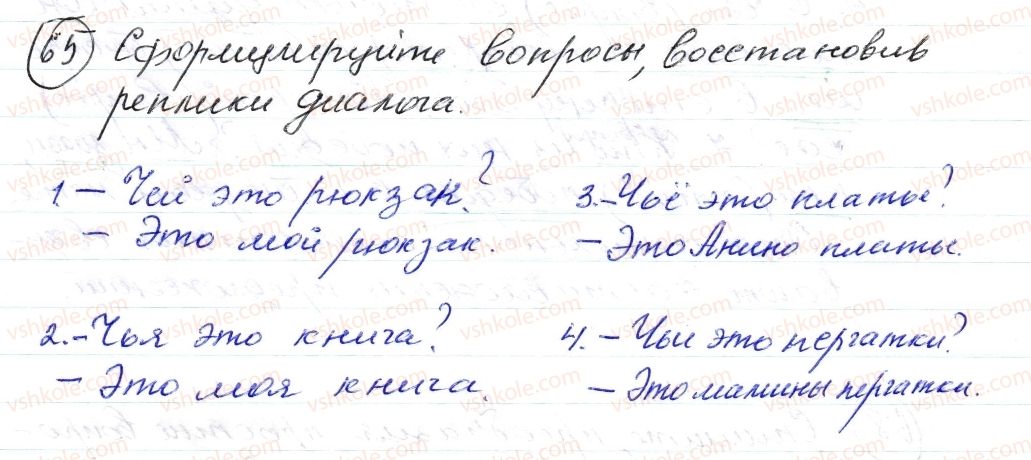 65 Сформулируйте вопросы, восстановив
реплики диалога.
1 – Чей это рюкзак?
– Это мой рюкзак.
2. – Чья это книга?
– Это моя книга.
3. – Чьё это платье?
– Это Анино платье.
4. – Чьи это пергатки?
– Это мамины пергатки.